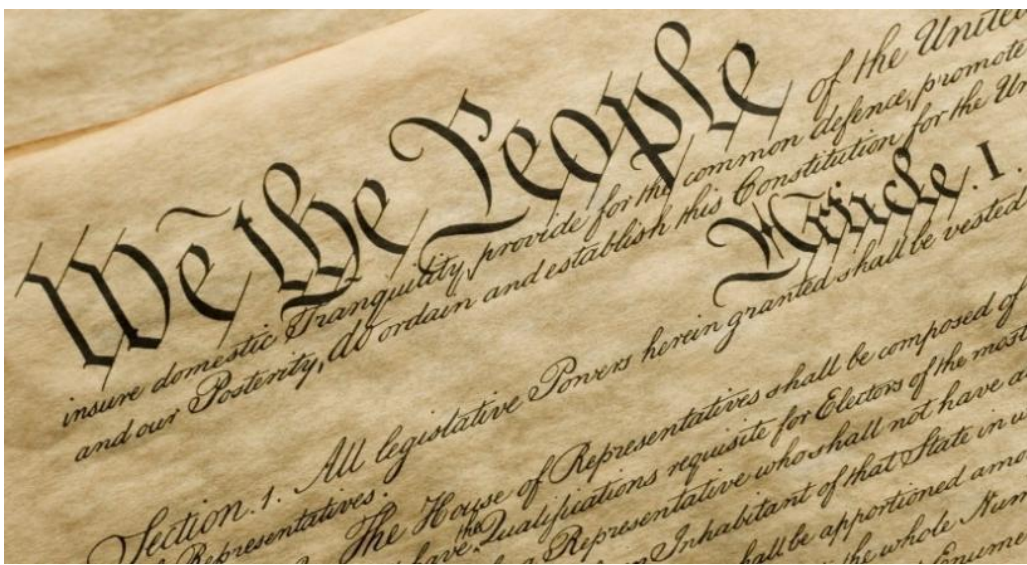 We the People of the United
insure domestic Tranquility, provide for the common defence, promote
and our Posterity, do ordain and establish this Constitution for the Un
Article. I.
Section. 1. All legislative Powers herein granted shall be vested
Representatives.
The House of Representatives shall be composed of
have the Qualifications requisite for Electors of the most
a Representative who shall not have a
Inhabitant of that State in w
shall be apportioned amo
the whole Num
Enume